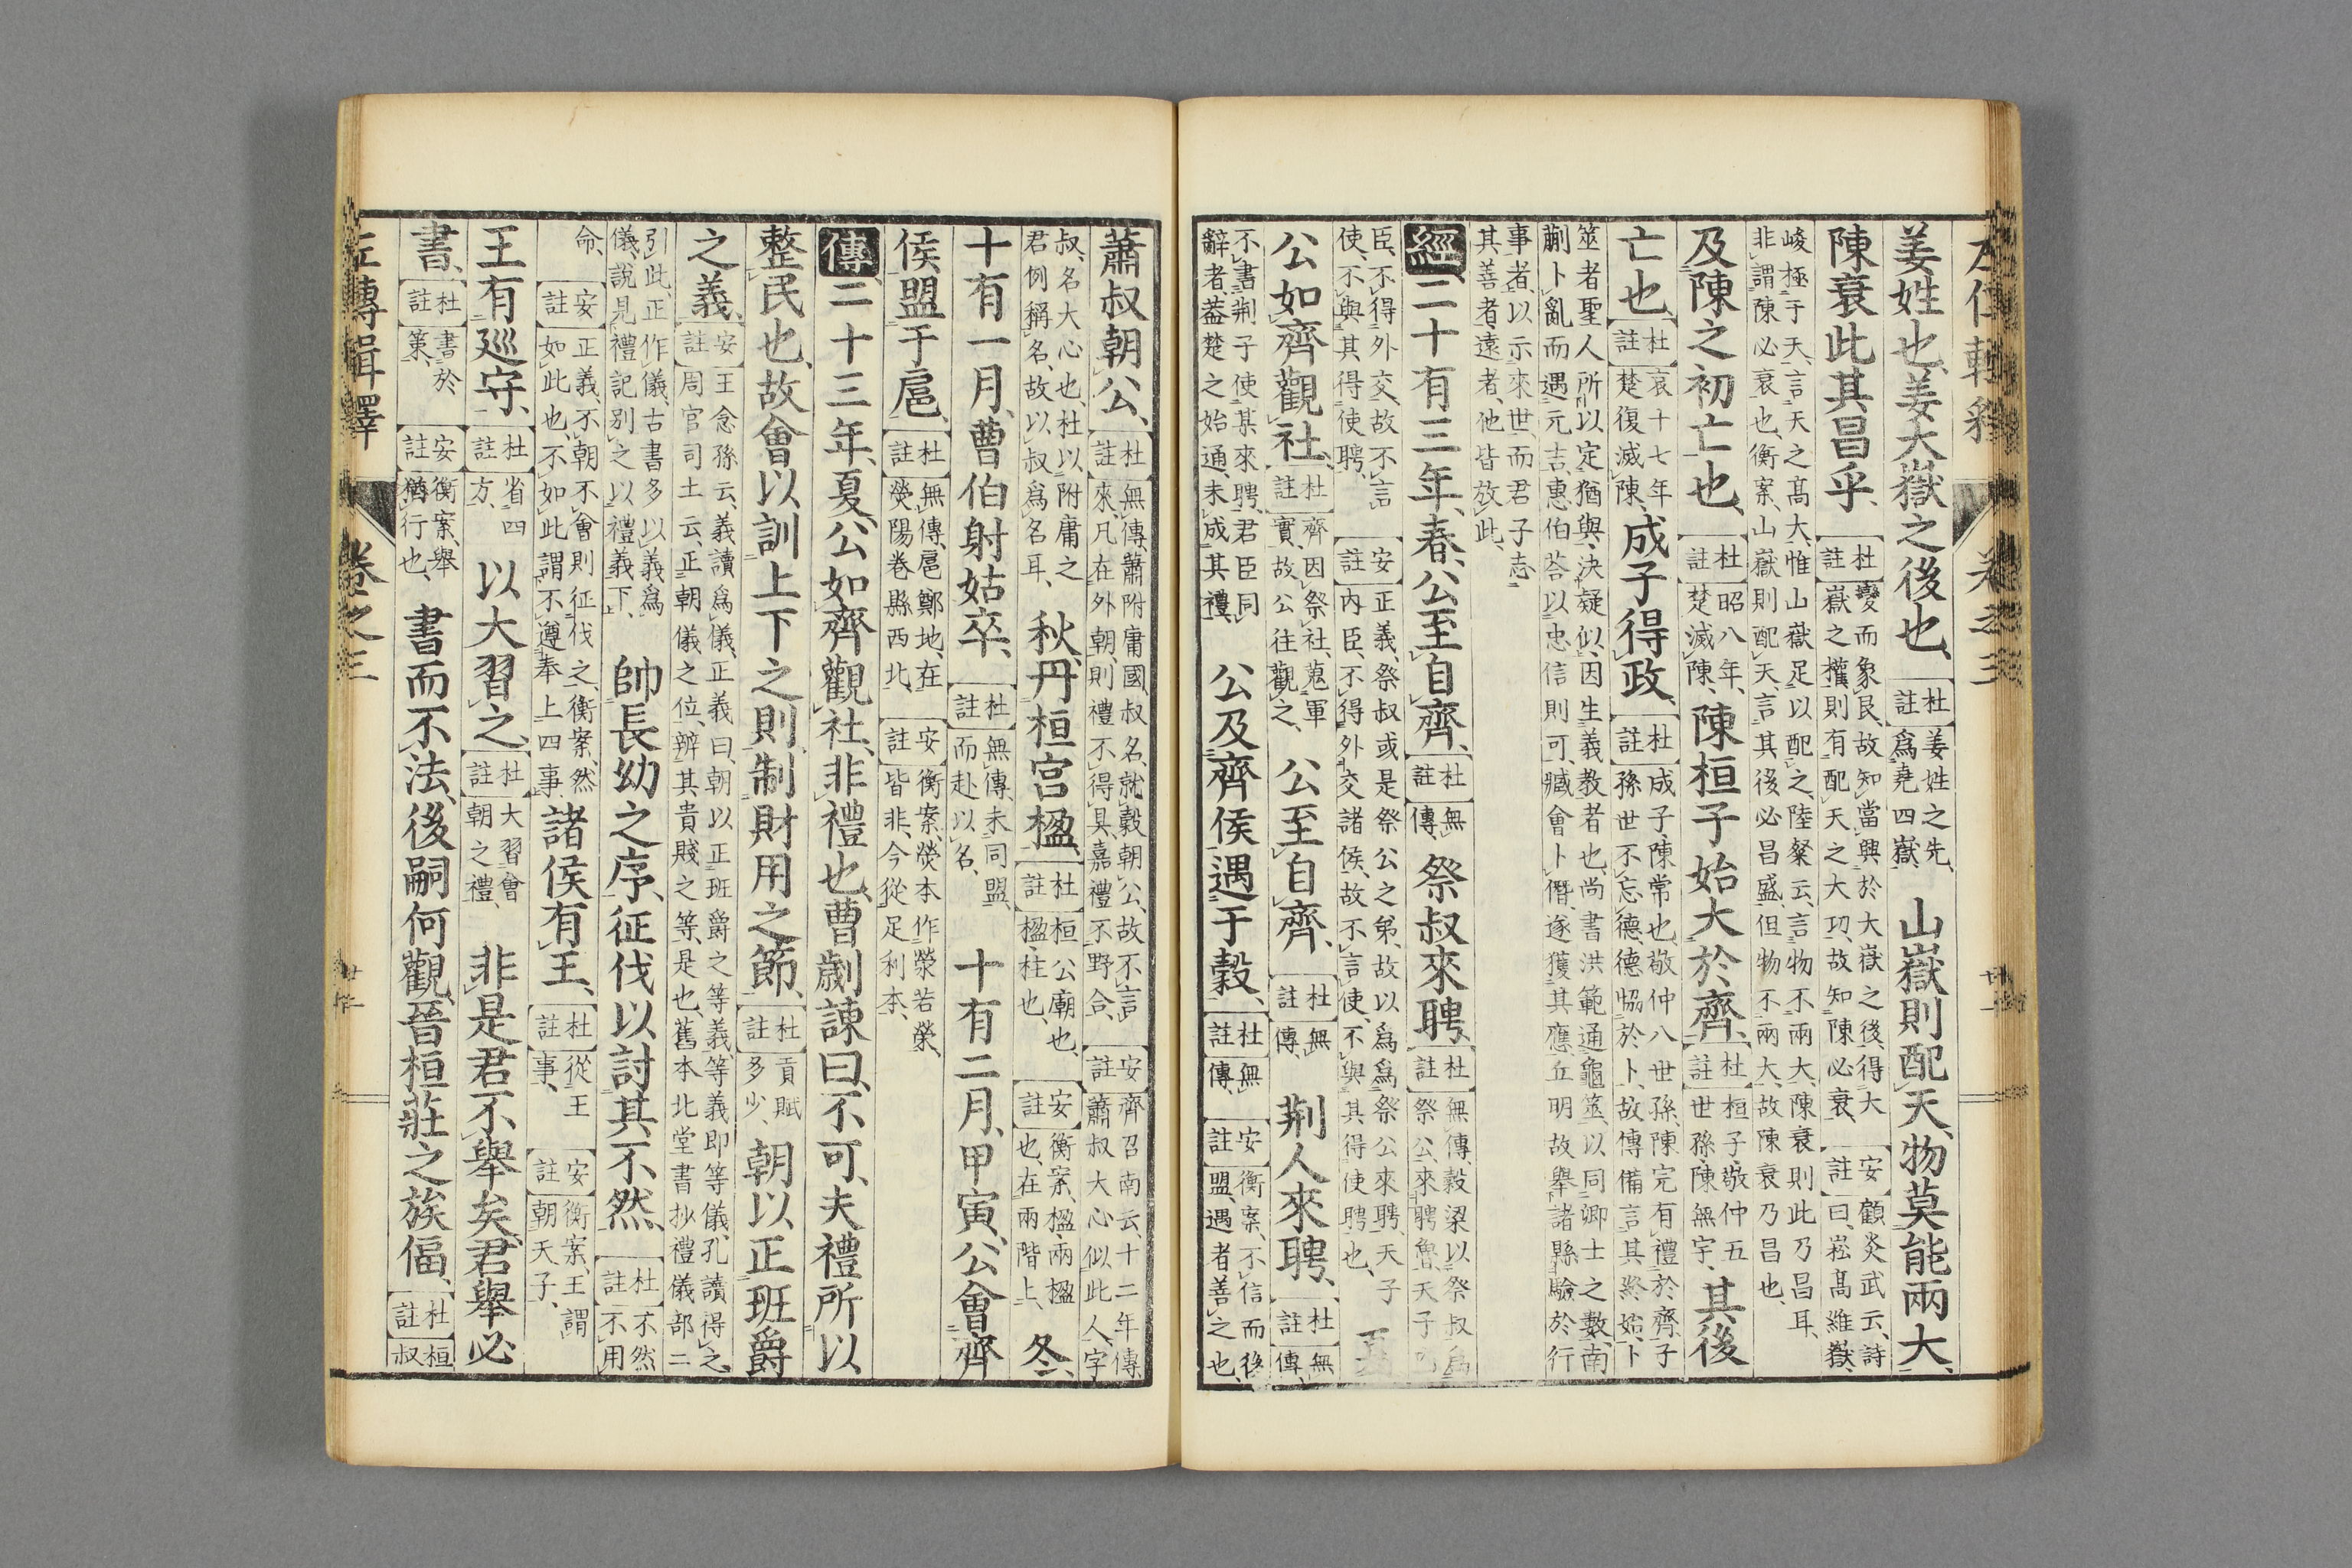 姜姓也、姜大嶽之後也、杜註姜姓之先、爲堯四嶽、山嶽則配天、物莫能兩大、
陳衰此其昌乎、杜註變而象艮、故知當興於大嶽之後、得大嶽之權、則有配天之大功、故知陳必衰、安註顧炎武云、詩曰、崧高維嶽、
峻極于天、言天之高大、惟山嶽足以配之、陸粲云、言物不兩大、陳衰則此乃昌耳、非謂陳必衰也、衡案、山嶽則配天、言其後必昌盛、但物不兩大、故陳衰乃昌也、
及陳之初亡也、杜註昭八年、楚滅陳、陳桓子始大於齊、杜註桓子敬仲五世孫、陳無宇、其後
亡也、杜註哀十七年楚復滅陳、成子得政、杜註成子陳常也、敬仲八世孫、陳完有禮於齊、子孫世不忘德、德協於卜、故傳備言其終始、卜
筮者聖人所以定猶與、決疑似、因生義教者也、尚書洪範通龜筮、以同卿士之數、南蒯卜亂而遇元吉、惠伯荅以忠信則可、臧會卜僭、遂獲其應、丘明故舉諸縣驗於行
事者、以示來世、而君子志其善者、遠者、他皆放此、
經二十有三年、春、公至自齊、杜註無傳、祭叔來聘、杜註無傳、穀梁以祭叔爲祭公、來聘魯、天子
臣、不得外交、故不言使、不與其得使聘、安註正義、祭叔或是祭公之弟、故以爲爲祭公來聘、天子內臣、不得外交諸侯、故不言使、不與其得使聘也、夏
公如齊觀社、杜註齊因祭社、蒐軍實、故公往觀之、公至自齊、杜註無傳、荆人來聘、杜註無傳、
不書荆子使某來聘、君臣同辭者、葢楚之始通、未成其禮、公及齊侯遇于穀、杜註無傳、安註衡案、不信而後盟、遇者善之也、
蕭叔朝公、杜註無傳、蕭附庸國、叔名、就穀朝公、故不言來、凡在外朝、則禮不得具、嘉禮不野合、安註齊召南云、十二年傳、蕭叔大心、似此人、字
叔、名大心也、杜以附庸之君例稱名、故以叔爲名耳、秋、丹桓宮楹、杜註桓公廟也、楹、柱也、安註衡案、楹、兩楹也、在兩階上、冬、
十有一月、曹伯射姑卒、杜註無傳、未同盟、而赴以名、十有二月、甲寅、公會齊
侯盟于扈、杜註無傳、扈鄭地、在滎陽卷縣西北、安註衡案、滎本作榮若縈、皆非、今從足利本、
傳二十三年、夏、公如齊觀社、非禮也、曹劌諫曰、不可、夫禮所以
整民也、故會以訓上下之則、制財用之節、杜註貢賦多少、朝以正班爵
之義、安註王念孫云、義讀爲儀、正義曰、朝以正班爵之等義、等義即等儀、孔讀得之、周官司士云、正朝儀之位、辨其貴賤之等、是也、舊本北堂書抄禮儀部二
引此正作儀、古書多以義爲儀、說見禮記別之以禮義下、帥長幼之序、征伐以討其不然、杜註不然、不用
命、安註正義、不朝不會則征伐之、衡案、然如此也、不如此謂不遵奉上四事、諸侯有王、杜註從王事、安註衡案、王謂朝天子、
王有巡守、杜註省四方、以大習之、杜註大習會朝之禮、非是君不舉矣、君舉必
書、杜註書於策、安註衡案、舉猶行也、書而不法、後嗣何觀、晉桓莊之族偪、杜註桓叔
左傳輯釋 卷之三